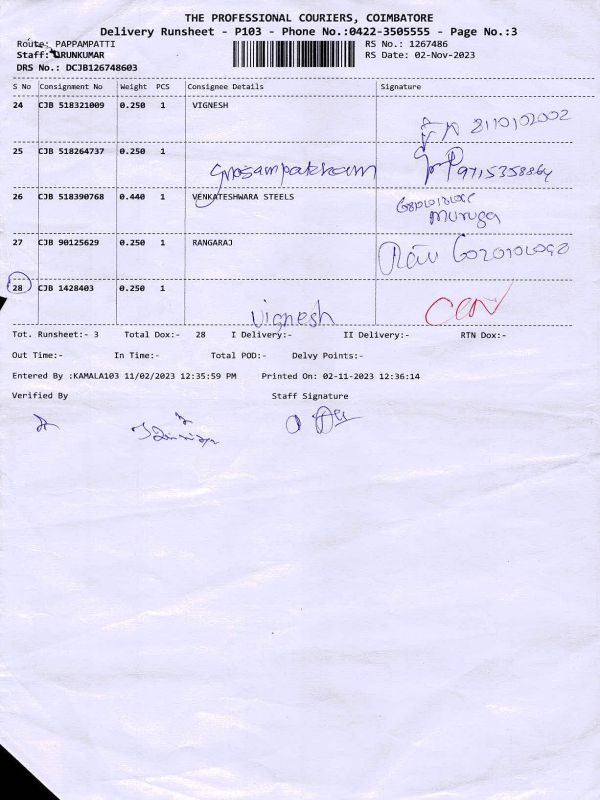 THE PROFESSIONAL COURIERS, COIMBATORE
Delivery Runsheet - P103 - Phone No.:0422-3505555 - Page No.:3
Route: PAPPAMPATTI RS No.: 1267486
Staff: ARUNKUMAR RS Date: 02-Nov-2023
DRS No.: DCJB126748603
S No Consignment No Weight PCS Consignee Details Signature
24 CJB 518321009 0.250 1 VIGNESH
25 CJB 518264737 0.250 1
9715358864
26 CJB 518390768 0.440 1 VENKATESHWARA STEELS
Muruga
27 CJB 90125629 0.250 1 RANGARAJ
28 CJB 1428403 0.250 1
Vignesh
Tot. Runsheet:- 3 Total Dox:- 28 I Delivery:- II Delivery:- RTN Dox:-
Out Time:- In Time:- Total POD:- Delvy Points:-
Entered By :KAMALA103 11/02/2023 12:35:59 PM Printed On: 02-11-2023 12:36:14
Verified By Staff Signature